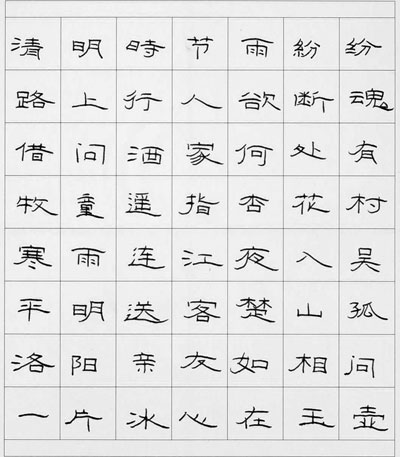 清明時节雨紛纷
路上行人欲断魂
借问酒家何处有
牧童遥指杏花村
寒雨连江夜入吴
平明送客楚山孤
洛阳亲友如相问
一片冰心在玉壶